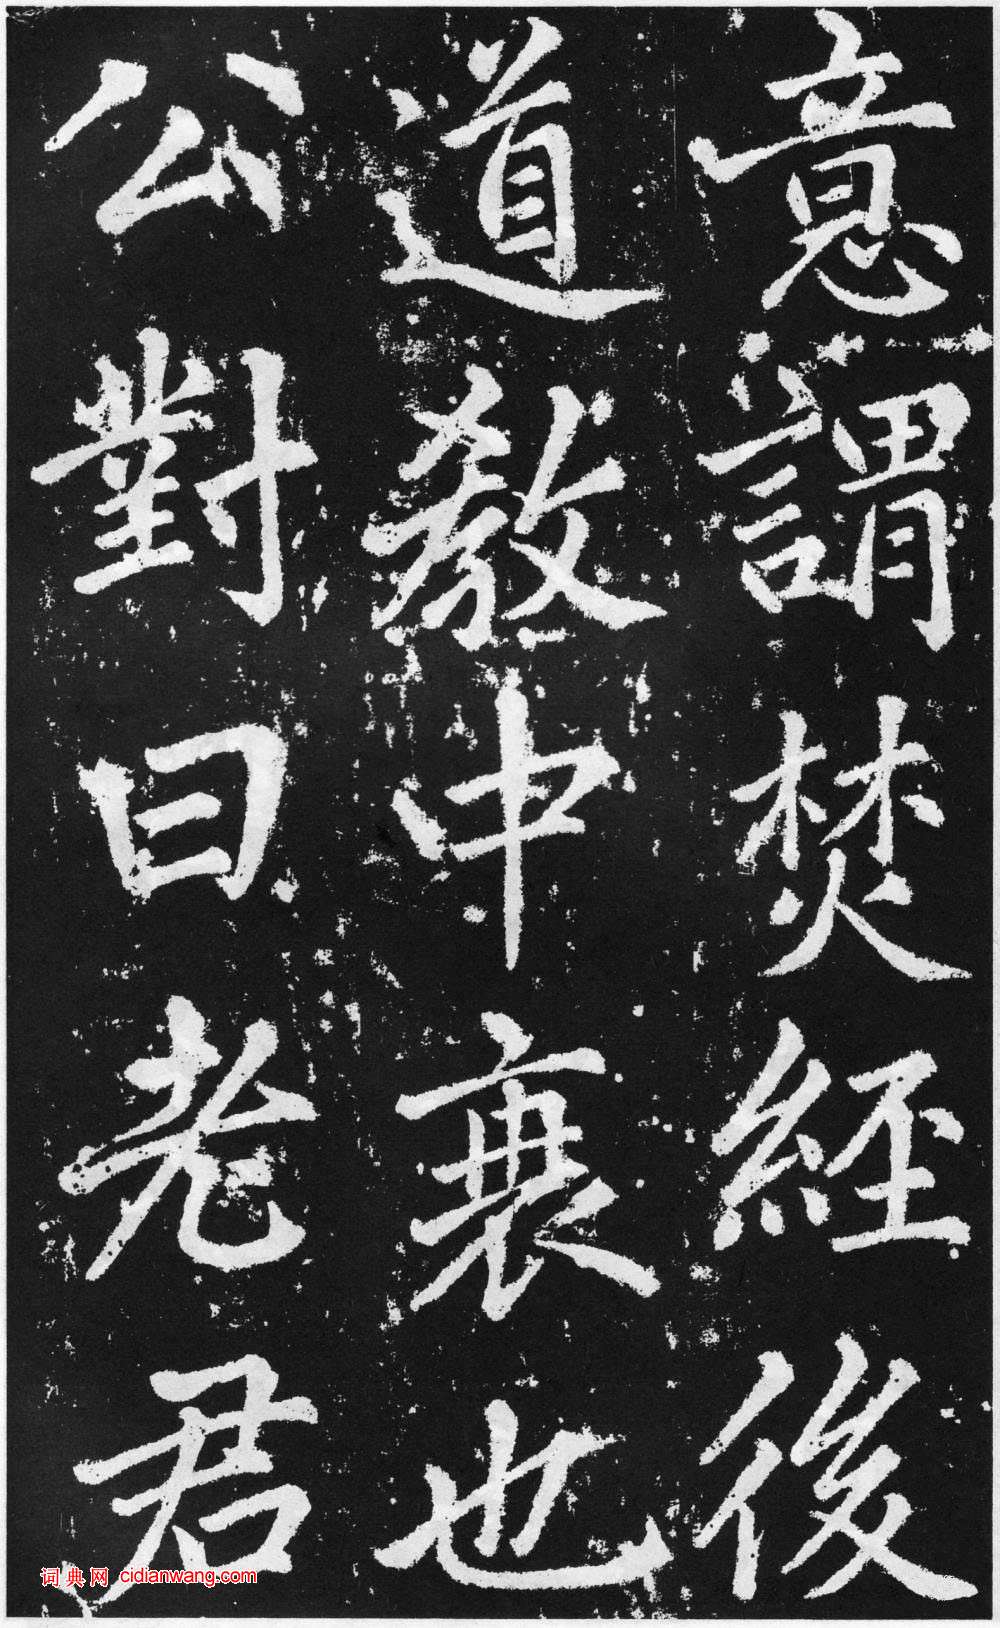 意謂焚經後
道教中衰也
公對曰老君
词典网 cidianwang.com